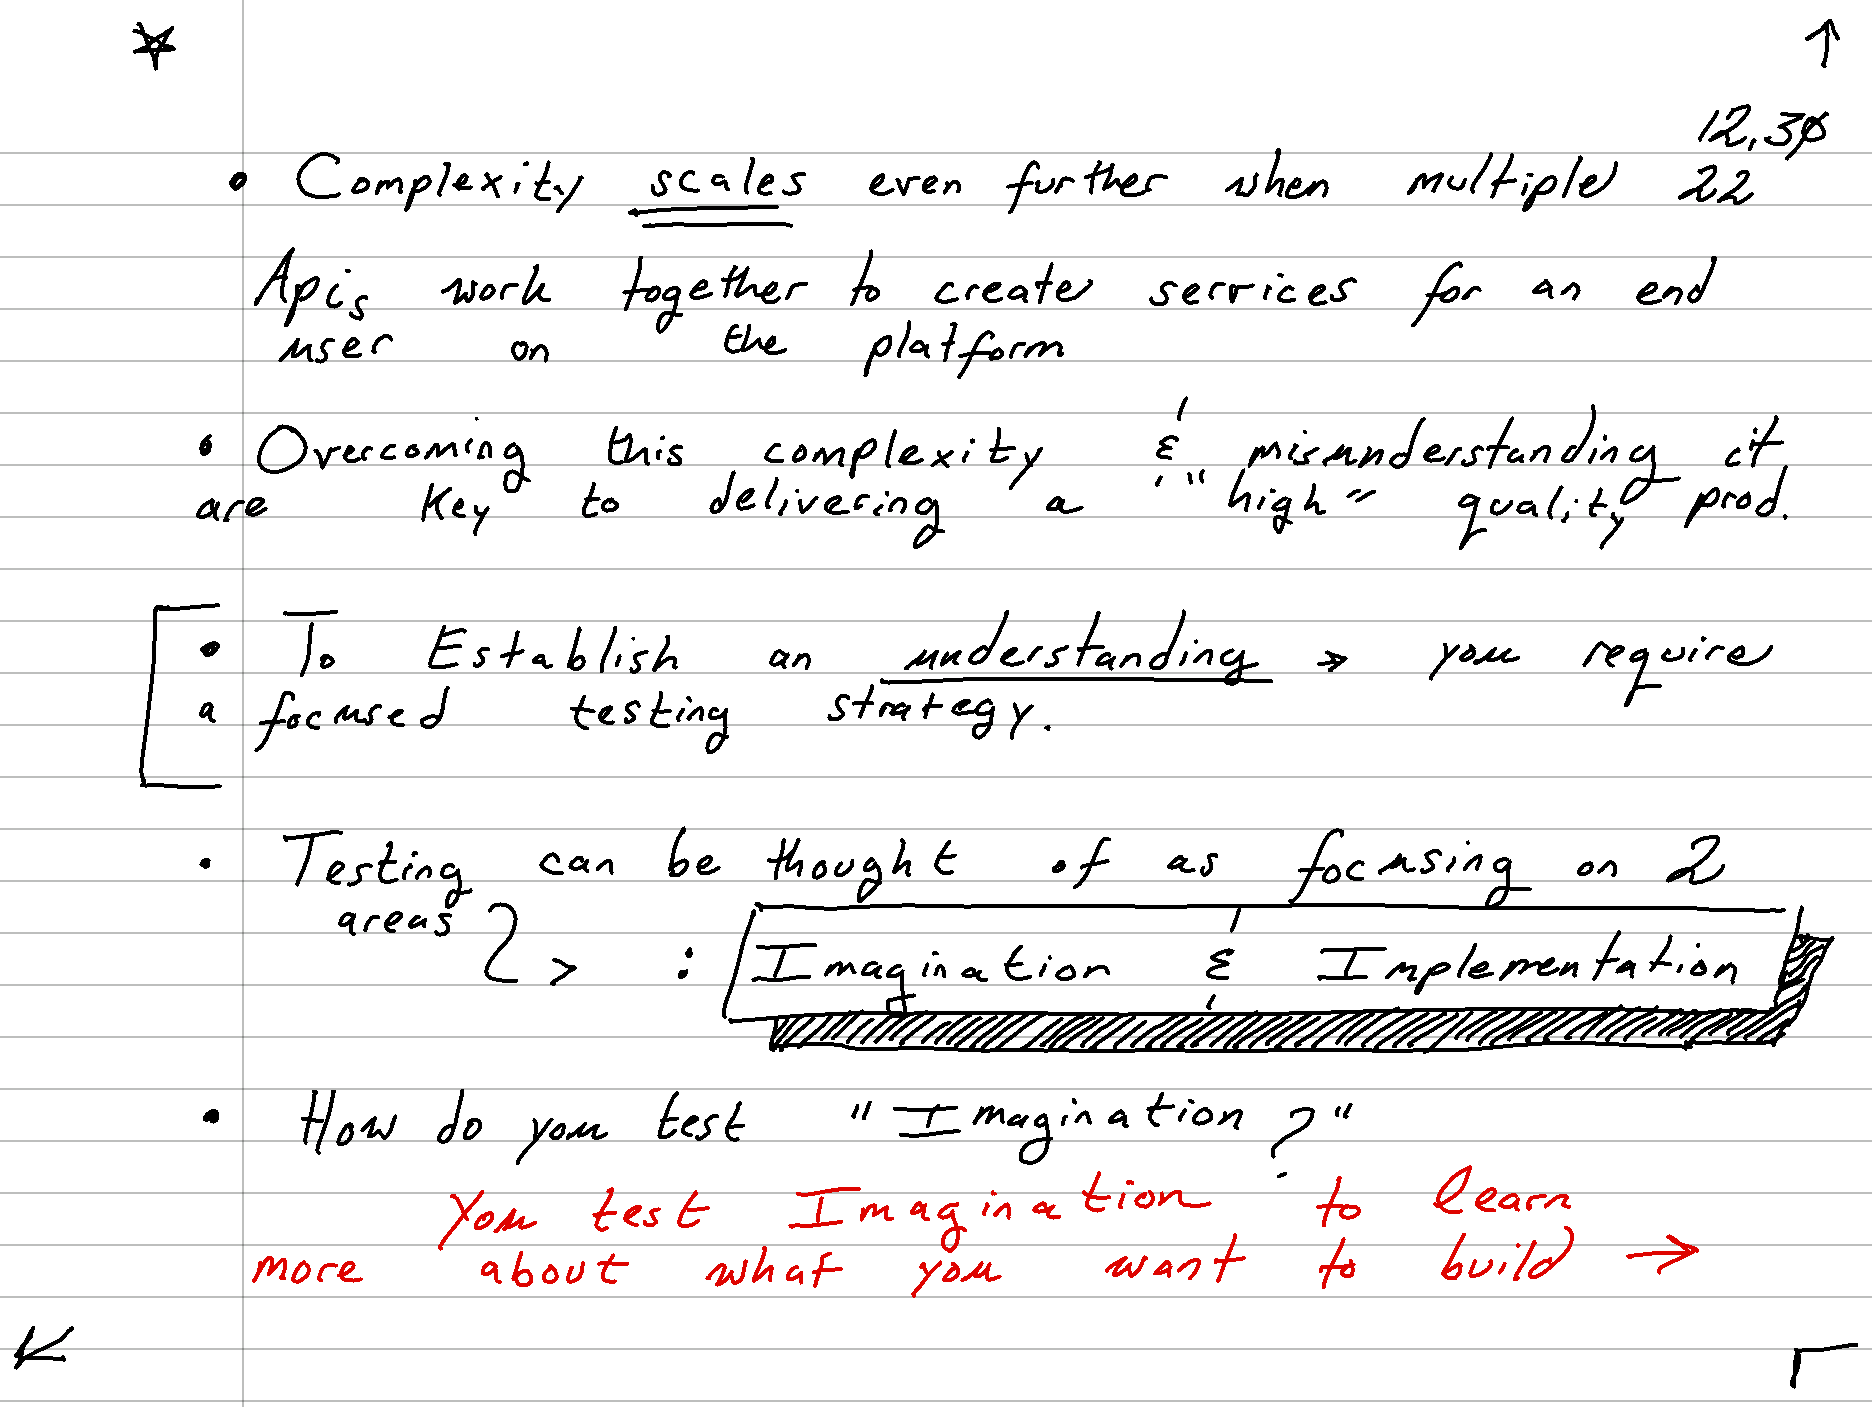 12.30
22
• Complexity scales even further when multiple
Apis work together to create services for an end
user on the platform
• Overcoming this complexity & misunderstanding it
are Key to delivering a "high" quality prod.
• To Establish an understanding » you require
a focused testing strategy.
• Testing can be thought of as focusing on 2
areas > :
Imagination & Implementation
• How do you test "Imagination?"
You test Imagination to learn
more about what you want to build →